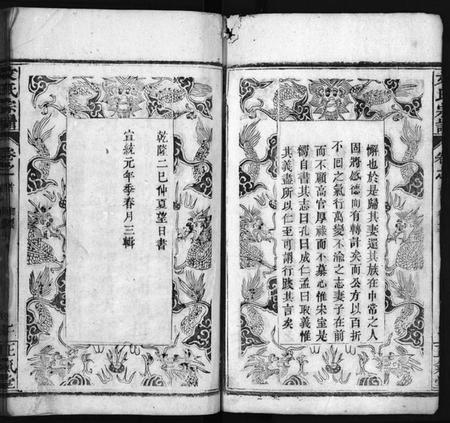 懈也於是歸其妻還其族在中常之人
固將感德而有轉計矣而公方以百折
不回之氣行萬變不渝之志妻子在前
而不顧高官厚祿而不慕心惟宋室是
獨自書其志曰孔曰成仁孟曰取義惟
其義盡所以仁至可謂行踐其言矣
乾隆二巳仲夏望日書
宣統元年季春月三輯
氏宗譜
卷之
正氣堂